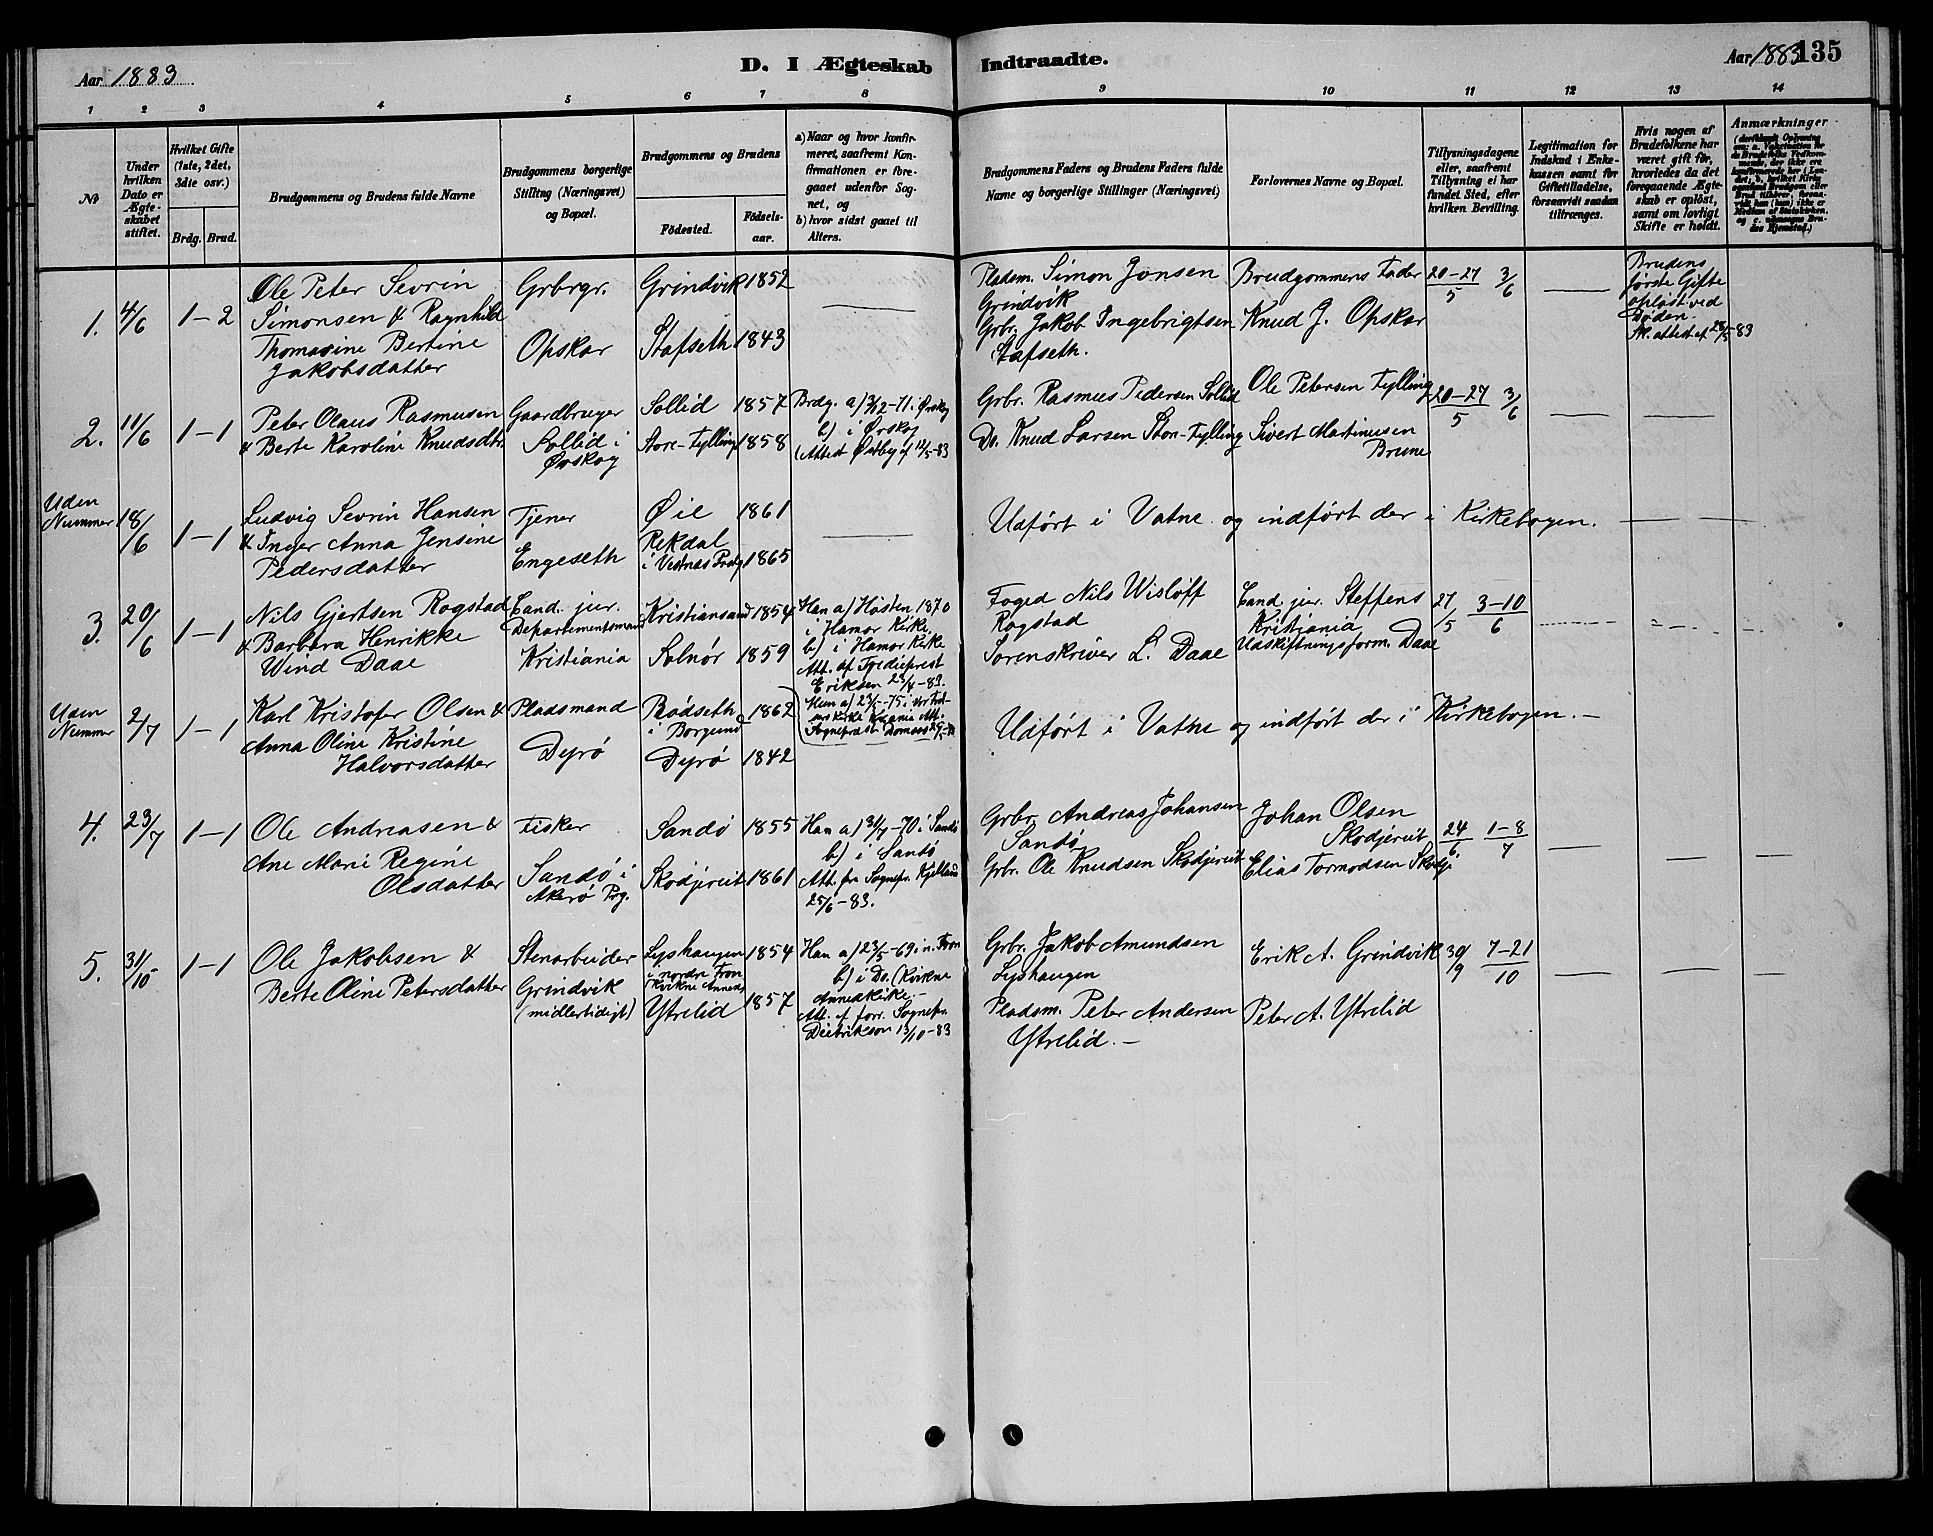 Aar 1883
D. I Ægteskab Indtraadte.
Aar 1883 135
1 2 3 4 5 6 7 8 9 10 11 12 13 14
No
Under hvilken Dato er Ægteskabet stiftet.
Hvilket Gifte (1ste, 2det, 3die osv.)
Brdg. Brud.
Brudgommens og Brudens fulde Navne
Brudgommens borgerlige Stilling (Næringsvei) og Bopæl.
Brudgommens og Brudens
Födested. Födselsaar.
a) Naar og hvor konfirmeret, saafremt Konfirmationen er foregaaet udenfor Sognet, og
b) hvor sidst gaaet til Alters.
Brudgommens Faders og Brudens Faders fulde Navne og borgerlige Stillinger (Næringsvei)
Forlovernes Navne og Bopæl.
Tillysningsdagene eller, saafremt Tillysning ei har fundet Sted, efter hvilken Bevilling.
Legitimation for Indskud i Enkekassen samt for Giftetilladelse, forsaavidt saadan tiltrænges.
Hvis nogen af Brudefolkene har været gift för, hvorledes da det foregaaende Ægteskab er oplöst, samt om lovligt Skifte er holdt.
Anmærkninger
1. 4/6 1-2
Ole Peter Sevrin
Simonsen & Ragnhild
Thomasine Bertine
Jakobsdatter
Grbrgr.
Opskar
Grindvik 1852
Stafseth 1843
Pladsm. Simon Jonsen
Grindvik
Grbr. Jakob Ingebrigtsen
Stafseth.
Brudgommens Fader
Knud J. Opskar
20-27/5 3/6
Brudens
første Gifte
opløst ved
Døden.
Sk. attest af 28/5 83
2. 11/6 1-1
Peter Olaus Rasmusen
& Berte Karoline Knudsdtr.
Gaardbruger
Sollid i
Ørskog
Sollid 1857
Store-Tylling 1858
Brdg. a) 3/12-71 i Ørskog
b) i Ørskog
(Attest Østbye af 12/5-83
Grbr. Rasmus Pedersen Sollid
Do. Knud Larsen Stor-Tylling
Ole Petersen Tylling
Sivert Martinusen
Brune
20-27/5 3/6
Uden
Nummer 18/6 1-1
Ludvig Sevrin Hansen
& Inger Anna Jensine
Pedersdatter
Tjener
Engeseth
Øie 1861
Rekdal
i Vestnæs Prstg 1865
Udført i Vatne og indført der i Kirkebogen.
3. 20/6 1-1
Nils Gjertsen Rogstad
& Barbara Henrikke
Wind Daae
Cand. jur.
Departementsmand
Kristiania
Kristiansand 1854
Solnør 1859
Han a) Høsten 1870
i Hamar Kirke
b) i Hamar Kirke
Att. af Tredieprest
Eriksen 23/4-83.
Hun a) 23/5-75 i
Foged Nils Wisløff
Rogstad
Sorenskriver L. Daae
Cand. jur. Steffens
Kristiania
Udskiftningsform. Daae
27/5 3-10/6
Uden
Nummer 2/7 1-1
Karl Kristofer Olsen &
Anna Oline Kristine
Halvorsdatter
Pladsmand
Dyrø
Bødseth 1862
i Borgund
Dyrø 1842
Udført i Vatne og indført der i Kirkebogen.
4. 23/7 1-1
Ole Andreasen &
Ane Marie Regine
Olsdatter
Fisker
Sandø i
Akerø Prg.
Sandø 1855
Skodjereit 1861
Han a) 31/7-70 i Sandø
b) i Sandø
Att. fra Sognepr. Kjelland
25/6-83.
Grbr. Andreas Johansen
Sandø
Grbr. Ole Knudsen Skodjereit
Johan Olsen
Skodjereit
Elias Tormodsen Skodje
24/6 1-8/7
5. 31/10 1-1
Ole Jakobsen &
Berte Oline Petersdatter
Stenarbeider
Grindvik
(midlertidigt)
Lyshaugen 1854
i nordre Fron
(Kvikne Annex)
Ytrelid 1857
Han a) 23/5-69 i n. Fron
b) i Do. (Kvikne
Annexkirke.-
Att. af forr. Sognepr.
Dietrikson 13/10-83
Grbr. Jakob Amundsen
Lyshaugen
Pladsm. Peter Andersen
Ytrelid.-
Erik A. Grindvik
Peter A. Ytrelid
30/9 7-21/10